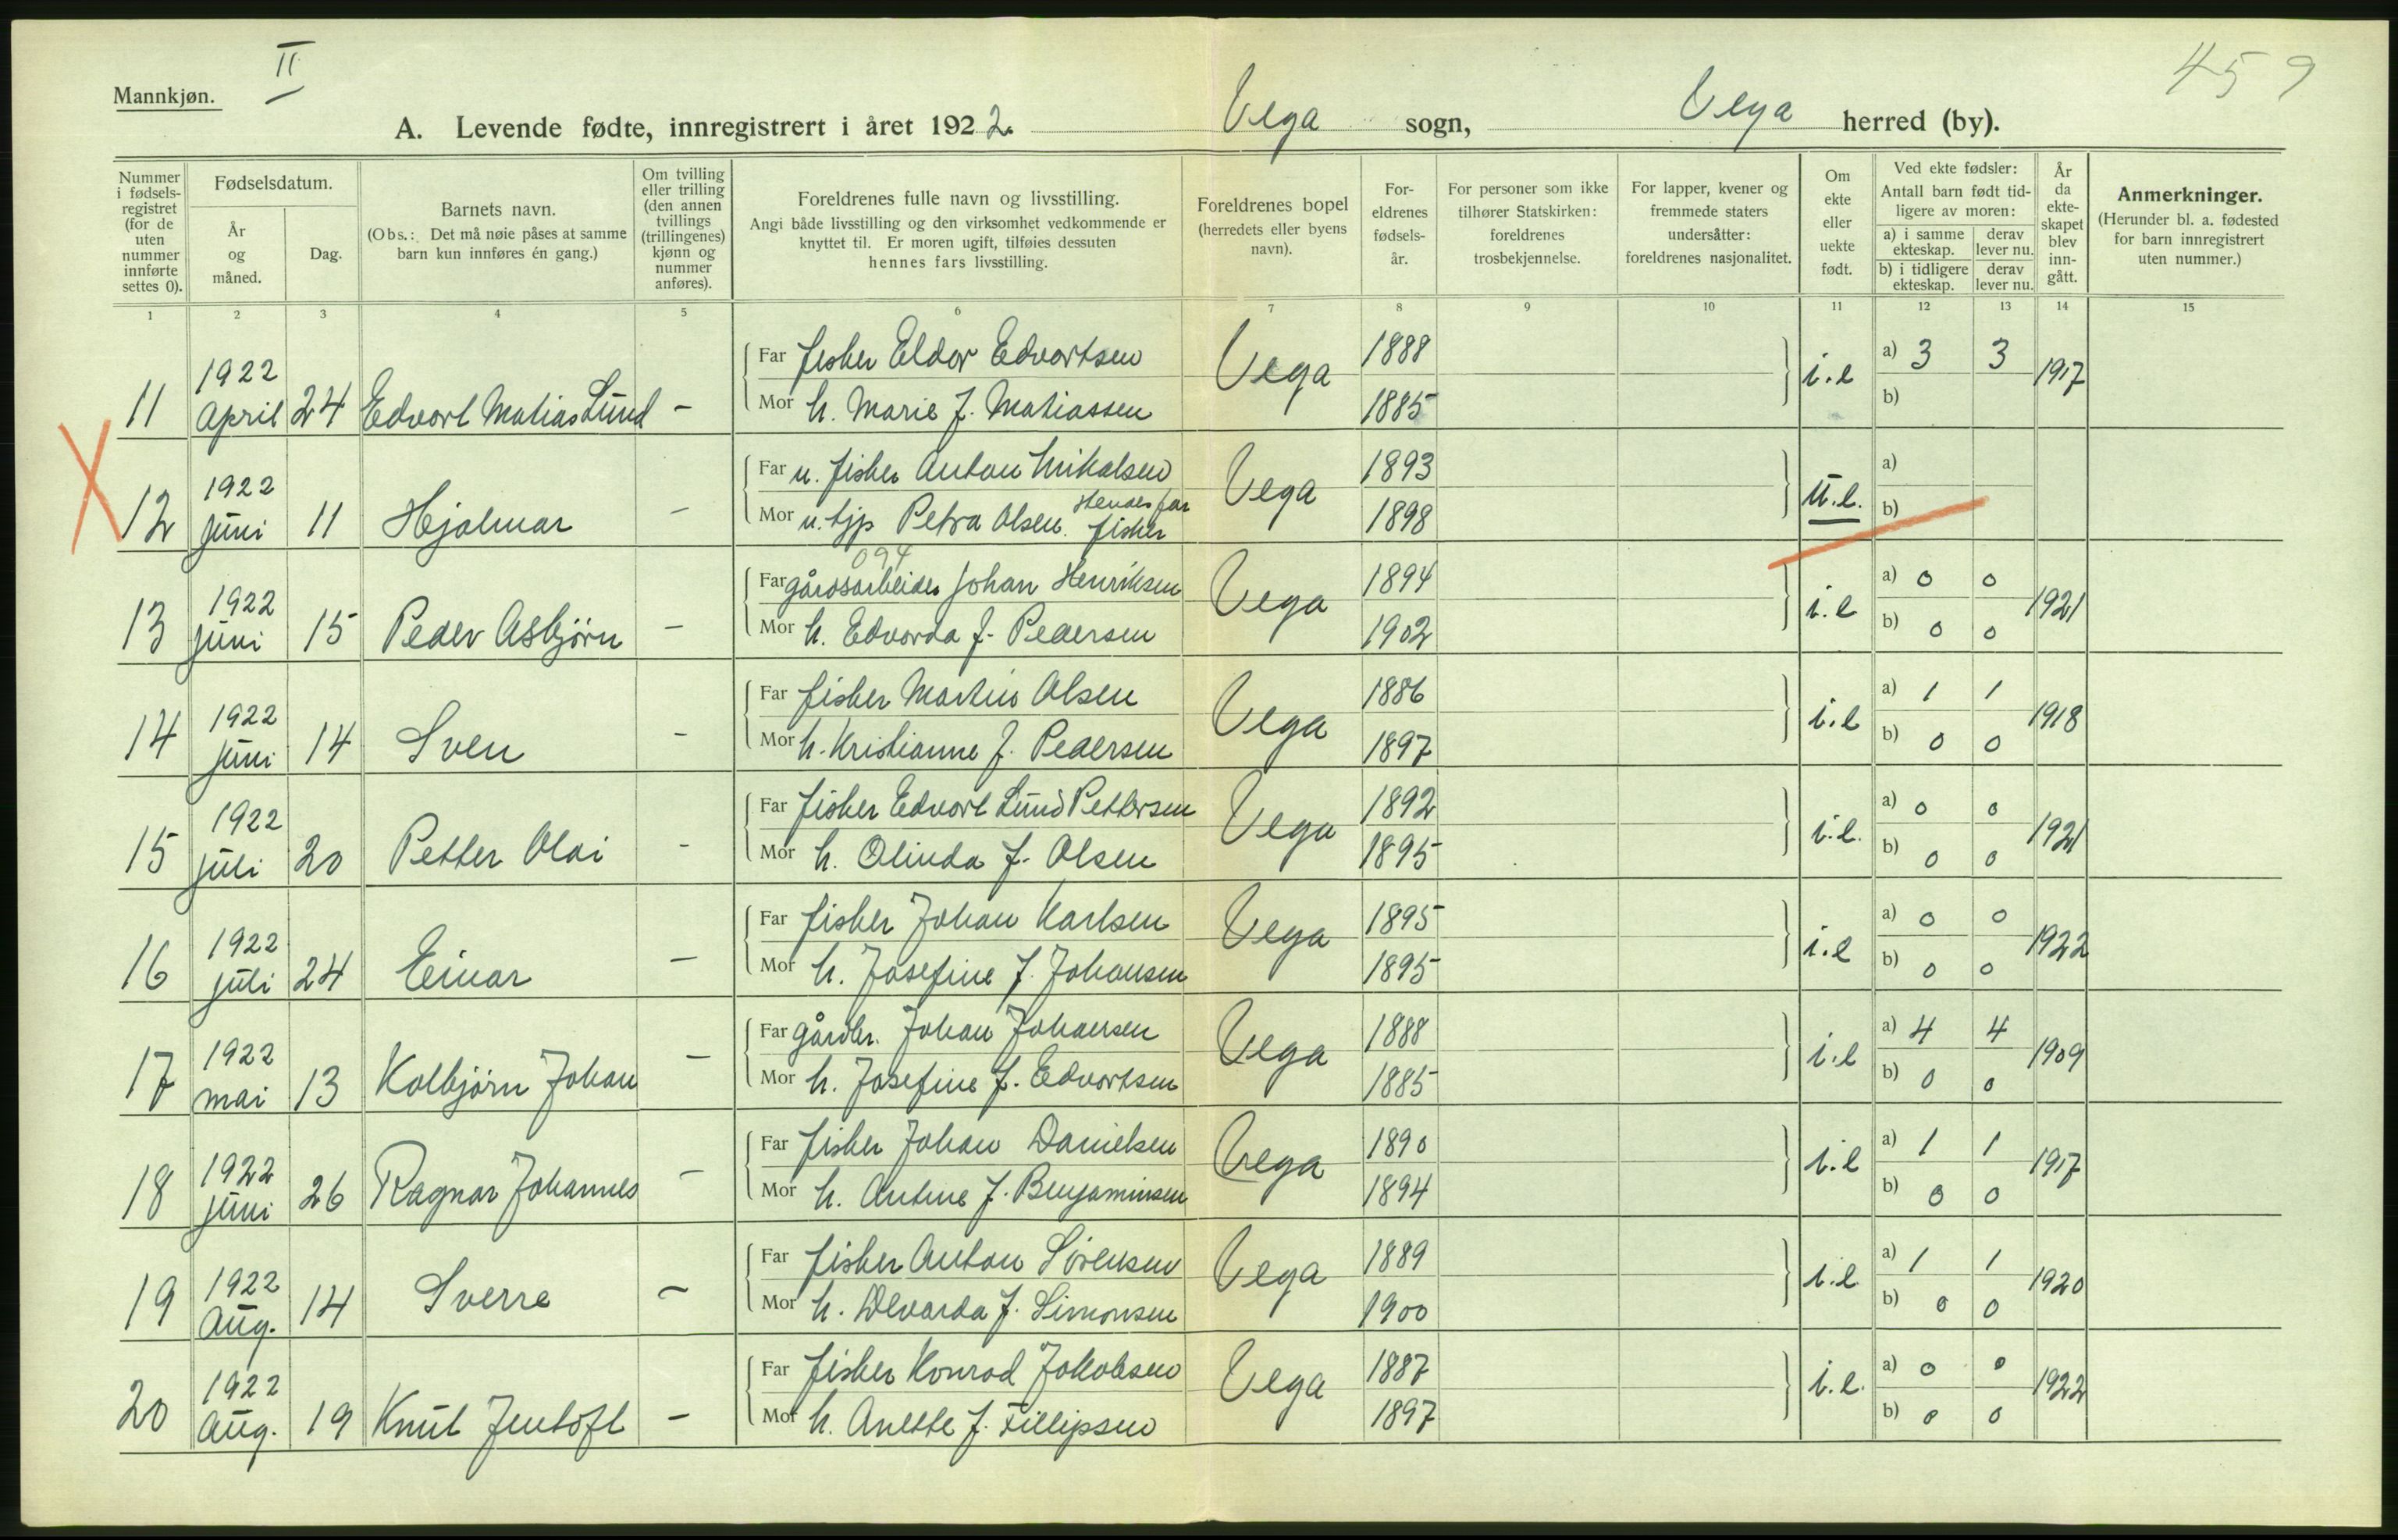 Mannkjøn.
II
459
A. Levende fødte, innregistrert i året 1922. Vega sogn, Vega herred (by).
Nummer i fødselsregistret (for de uten nummer innførte settes 0).
Fødselsdatum.
År og måned.
Dag.
Barnets navn.
(Obs.: Det må nøie påses at samme barn kun innføres én gang.)
Om tvilling eller trilling (den annen tvillings (trillingenes) kjønn og nummer anføres).
Foreldrenes fulle navn og livsstilling.
Angi både livsstilling og den virksomhet vedkommende er knyttet til. Er moren ugift, tilføies dessuten hennes fars livsstilling.
Foreldrenes bopel (herredets eller byens navn).
Foreldrenes fødselsår.
For personer som ikke tilhører Statskirken: foreldrenes trosbekjennelse.
For lapper, kvener og fremmede staters undersåtter: foreldrenes nasjonalitet.
Om ekte eller uekte født.
Ved ekte fødsler: Antall barn født tidligere av moren:
a) i samme ekteskap. derav lever nu.
b) i tidligere ekteskap. derav lever nu.
År da ekteskapet blev inngått.
Anmerkninger.
(Herunder bl. a. fødested for barn innregistrert uten nummer.)
1 2 3 4 5 6 7 8 9 10 11 12 13 14 15
11 1922 April 24 Edvart Matias Lund - Far fisker Eldor Edvartsen Vega 1888 i.e a) 3 3 1917
Mor h. Marie f. Matiassen 1885 b)
X 12 1922 juni 11 Hjalmar - Far u. fisker Anton Mikalsen Vega 1893 u.e. a)
Mor u. tjp Petra Olsen. Hendes far fisker 1898 b)
094
13 1922 juni 15 Peder Asbjørn - Far gårdsarbeider Johan Henriksen Vega 1894 i.e a) 0 0 1921
Mor h. Edvarda f. Pedersen 1902 b) 0 0
14 1922 juni 14 Sven - Far fisker Martin Olsen Vega 1886 i.e a) 1 1 1918
Mor h. Kristianne f. Pedersen 1897 b) 0 0
15 1922 juli 20 Petter Olai - Far fisker Edvart Lund Pettersen Vega 1892 i.e. a) 0 0 1921
Mor h. Olinda f. Olsen 1895 b) 0 0
16 1922 juli 24 Einar - Far fisker Johan Karlsen Vega 1895 i.e a) 0 0 1922
Mor h. Josefine f. Johansen 1895 b) 0 0
17 1922 mai 13 Kolbjørn Johan - Far gårdbr. Johan Johansen Vega 1888 i.e a) 4 4 1909
Mor h. Josefine f. Edvartsen 1885 b) 0 0
18 1922 juni 26 Ragnar Johannes - Far fisker Johan Danielsen Vega 1890 i.e a) 1 1 1917
Mor h. Antine f. Benjaminsen 1894 b) 0 0
19 1922 Aug. 14 Sverre - Far fisker Anton Sørensen Vega 1889 i.e. a) 1 1 1920
Mor h. Alvarda f. Simonsen 1900 b) 0 0
20 1922 Aug. 19 Knut Jentoft - Far fisker Konrad Jakobsen Vega 1887 i.e. a) 0 0 1922
Mor h. Anette f. Fillipsen 1897 b) 0 0